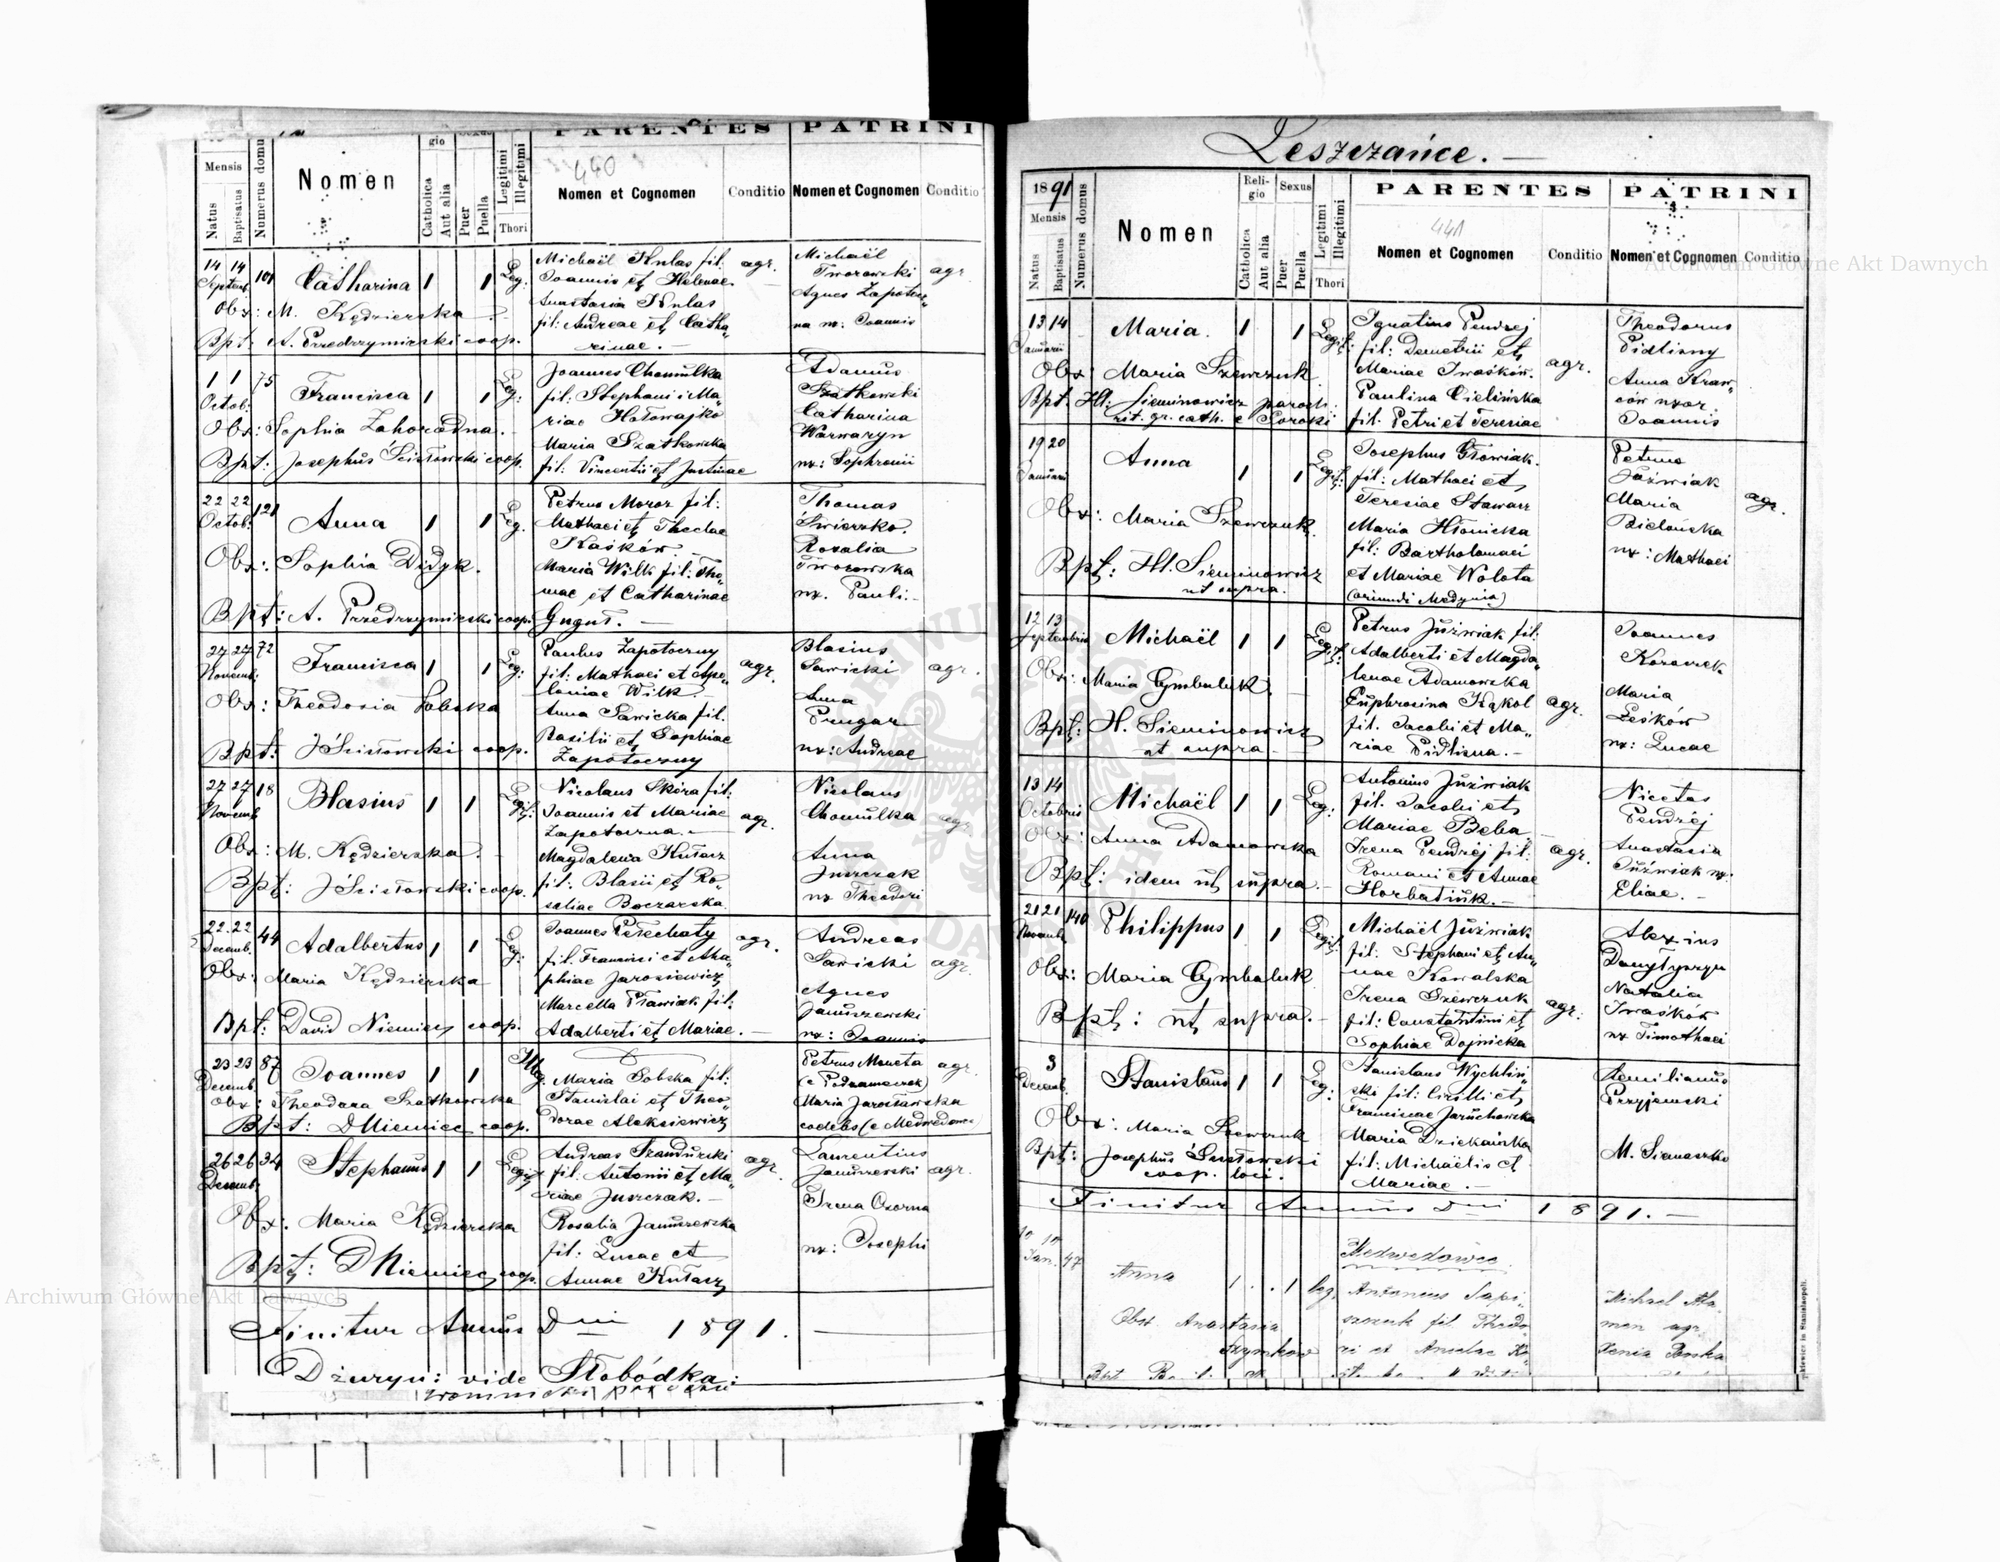 Mensis
Natus
Baptisatus
Numerus domus
Nomen
gio
Catholica
Aut alia
Puer
Puella
Legitimi
Illegitimi
Thori
PARENTES
440
Nomen et Cognomen
Conditio
PATRINI
Nomen et Cognomen
Conditio
14 14
Septemb.
101
Catharina
1 1
Leg.
Obx: M. Kędzierska
Bpt: A. Przedrzymirski coop.
Michaël Kulas fil.
Joannis et Helenae
Anastasia Kulas
fil: Andreae et Catha„
rinae. —
agr.
Michaël
Tworowski
Agnes Zapotocz„
na ux: Joannis
agr.
1 1
Octob:
75
Francisca
1 1
Leg:
Obx: Sophia Zahoradna.
Bpt: Josephus Ścisłowski coop.
Joannes Chomulka
fil: Stephani i Ma„
riae Hołowajko
Maria Szatkowska
fil: Vincentii et Justinae
Adamus
Szatkowski
Catharina
Warwaryn
ux: Sophronii
22 22
Octob:
121
Anna
1 1
Leg.
Obx: Sophia Dydyk.
Bpt: A. Przedrzymirski coop.
Petrus Moroz fil:
Mathaei et Theclae
Kaśków
Maria Wilk fil: Tho„
mae et Catharinae
Gugul. —
Thomas
Świerzko.
Rozalia
Tworowska
ux. Pauli. —
27 27
Novemb:
72
Francisca
1 1
Leg:
Obx: Theodosia Sobska
Bpt: J Ścisłowski coop.
Paulus Zapotoczny
fil: Mathaei et Apo„
loniae Wilk.
Anna Sawicka fil.
Basilii et Sophiae
Zapotoczny
agr.
Blasius
Sawicki
Anna
Prugar
ux: Andreae
agr.
27 27
Novemb
18
Blasius
1 1
Obx: M. Kędzierska.
Bpt: J Ścisłowski coop.
Nicolaus Skóra fil:
Joannis et Mariae
Zapotoczna. —
Magdalena Kułacz
fil: Blasii et Ro„
saliae Boczarska.
agr.
Nicolaus
Chomulka
Anna
Juszczak
ux Theodori
agr
22. 22
Decemb.
44
Adalbertus
1 1
Leg:
Obx: Maria Kędzierska
Bpt: David Niemiec coop.
Joannes Petechaty
fil. Francisci et Aga„
phiae Jarosiewicz
Marcella Pławiak fil:
Adalberti et Mariae. —
agr.
Andreas
Sawicki
Agnes
Januszewski
ux: Joannis
agr.
23 23
Decemb.
87
Joannes
1 1
Illeg.
Obx: Theodora Szatkowska
Bpt: D Niemiec coop.
Maria Sobska fil:
Stanislai et Theo„
dorae Aleksiewicz
Petrus Moneta
Maria Jarosławska
caelebs (e Medwedowce)
agr.
26 26
Decemb.
34
Stephanus
1 1
Obx: Maria Kędzierska
Bpt: D Niemiec coop.
Andreas Szandurski
fil: Antonii et Ma„
riae Juszczak. —
Rosalia Januszewska
fil: Lucae et
Annae Kułacz
agr.
Laurentius
Januszewski
Irena Czorna
ux: Josephi
agr.
Finitur Annus Dni 1891. —
Dżuryn: vide Słobódka:
Leszczańce. —
1891
Mensis
Natus
Baptisatus
Numerus domus
Nomen
Religio
Catholica
Aut alia
Sexus
Puer
Puella
Legitimi
Illegitimi
Thori
PARENTES
441
Nomen et Cognomen
Conditio
PATRINI
Nomen et Cognomen
Conditio
13 14
Januarii
Maria.
1 1
Obx: Maria Szewczuk
Bpt. Hl. Sieminowicz paroch.
rit. gr. cath. e Soroki
Ignatius Pendzej
fil: Demetrii et
Mariae Iwaśków.
Paulina Cielińska
fil. Petri et Teresiae
agr.
Theodorus
Pidlisny
Anna Kraw„
ców uxor.
Joannis
19 20
Januari
Anna
1 1
Obx: Maria Szewczuk
Bpt: Hl. Sieminowicz
ut supra.
Josephus Głowiak.
fil: Mathaei et
Teresiae Stawarz
Maria Hłonicka
fil: Bartholomaei
et Mariae Wolota
(oriundi Medynia)
Petrus
Jóźwiak
Maria
Bielańska
ux: Mathaei
agr.
12 13
Septembris
Michaël
1 1
Obx: Maria Cymbaluk
Bpt: H. Sieminowicz
ut supra —
Petrus Juźwiak fil:
Adalberti et Magda„
lenae Adamowska
Euphrosina Kąkol
fil. Jacobi et Ma„
riae Pidlisna. —
agr.
Joannes
Maria
Leśków
ux: Lucae
13 14
Octobris
Michaël
1 1
Leg:
Obx: Anna Adamowska
Bpt: idem ut supra —
Antonius Juźwiak
fil. Jacobi et
Mariae Beba —
Irena Pendzéj fil:
Romani et Annae
Horbatiuk. —
agr.
Nicetas
Pendzéj
Anastasia
Juźwiak ux:
Eliae. —
21 21
Novemb
140
Philippus
1 1
Obx: Maria Cymbaluk
Bpt: ut supra. —
Michaël Juźwiak
fil: Stephani et An„
nae Kowalska
Irena Szewczuk
fil: Constantini et
Sophiae Dojnicka
agr:
Alexius
Natalia
Iwaśków
ux Timothaei
3
Decemb.
Stanislaus
1 1
Leg:
Obx: Maria Szewczuk
Bpt: Josephus Ścisłowski
coop. loci.
Stanislaus Wychliń„
ski fil: Cirilli et
Franciscae Jaruchowska
Maria Dziekańska
fil: Michaëlis et
Mariae. —
Aemilianus
Przyjemski
M. Siemaszko
Finitur Annus Dni 1891. —
Medwedowce
10 10
Jan.
47
Anna
1 . . 1
leg.
Obst. Anastasia
Szymków
Antonius Sapi„
szczuk fil. Theodo„
ri et Anielae Ko„
Michael
man agr.
Xenia
Archiwum Główne Akt Dawnych
Archiwum Główne Akt Dawnych